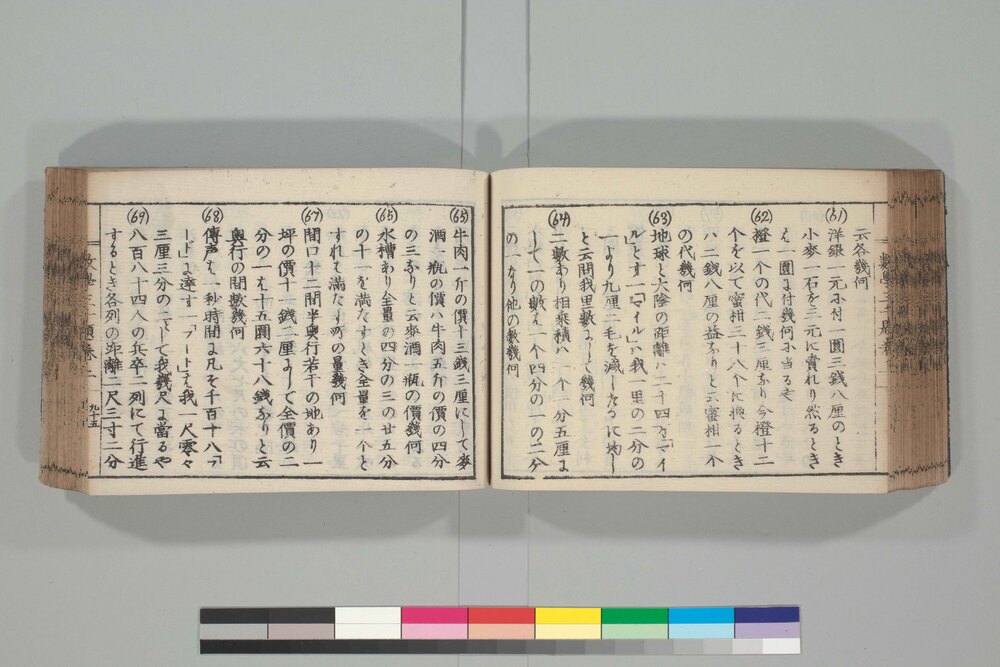 云各幾何
(61)
洋銀一元ニ付一圓三錢八厘のとき
小麥一石を三元に賣れり然るとき
ハ一圓ニ付幾何ニ当るや
(62)
橙一个の代二錢三厘なり今橙十二
个を以て蜜柑三十八个に換るとき
ハ二錢八厘の益ありと云蜜柑一个
の代幾何
(63)
地球と大陰の距離ハ二十四万「マイ
ル」とす一「マイル」ハ我一里の二分の
一より九厘二毛を減したるに均し
と云間我里數ニして幾何
(64)
二數あり相乗積ハ一个二分五厘に
して一の數ハ一个四分の一の二分
の一なり他の數幾何
(65)
牛肉一斤の價十三錢三厘にして麥
酒一瓶の價ハ牛肉五斤の價の四分
の三なりと云麥酒一瓶の價幾何
(65)
水槽あり全量の四分の三の廿五分
の十一を満たすとき全量を一个と
すれハ満たす所の量幾何
(67)
間口十二間半奥行若干の地あり一
坪の價十一錢二厘にして全價の二
分の一ハ十五圓六十八錢なりと云
奥行の間數幾何
(68)
傳声ハ一秒時間に凡そ千百十八「フ
ード」に達す一「フード」ハ我一尺零々
三厘三分の二として我幾尺に當るや
(69)
八百八十四人の兵卒二列にて行進
するとき各列の距離二尺三寸二分
九十五